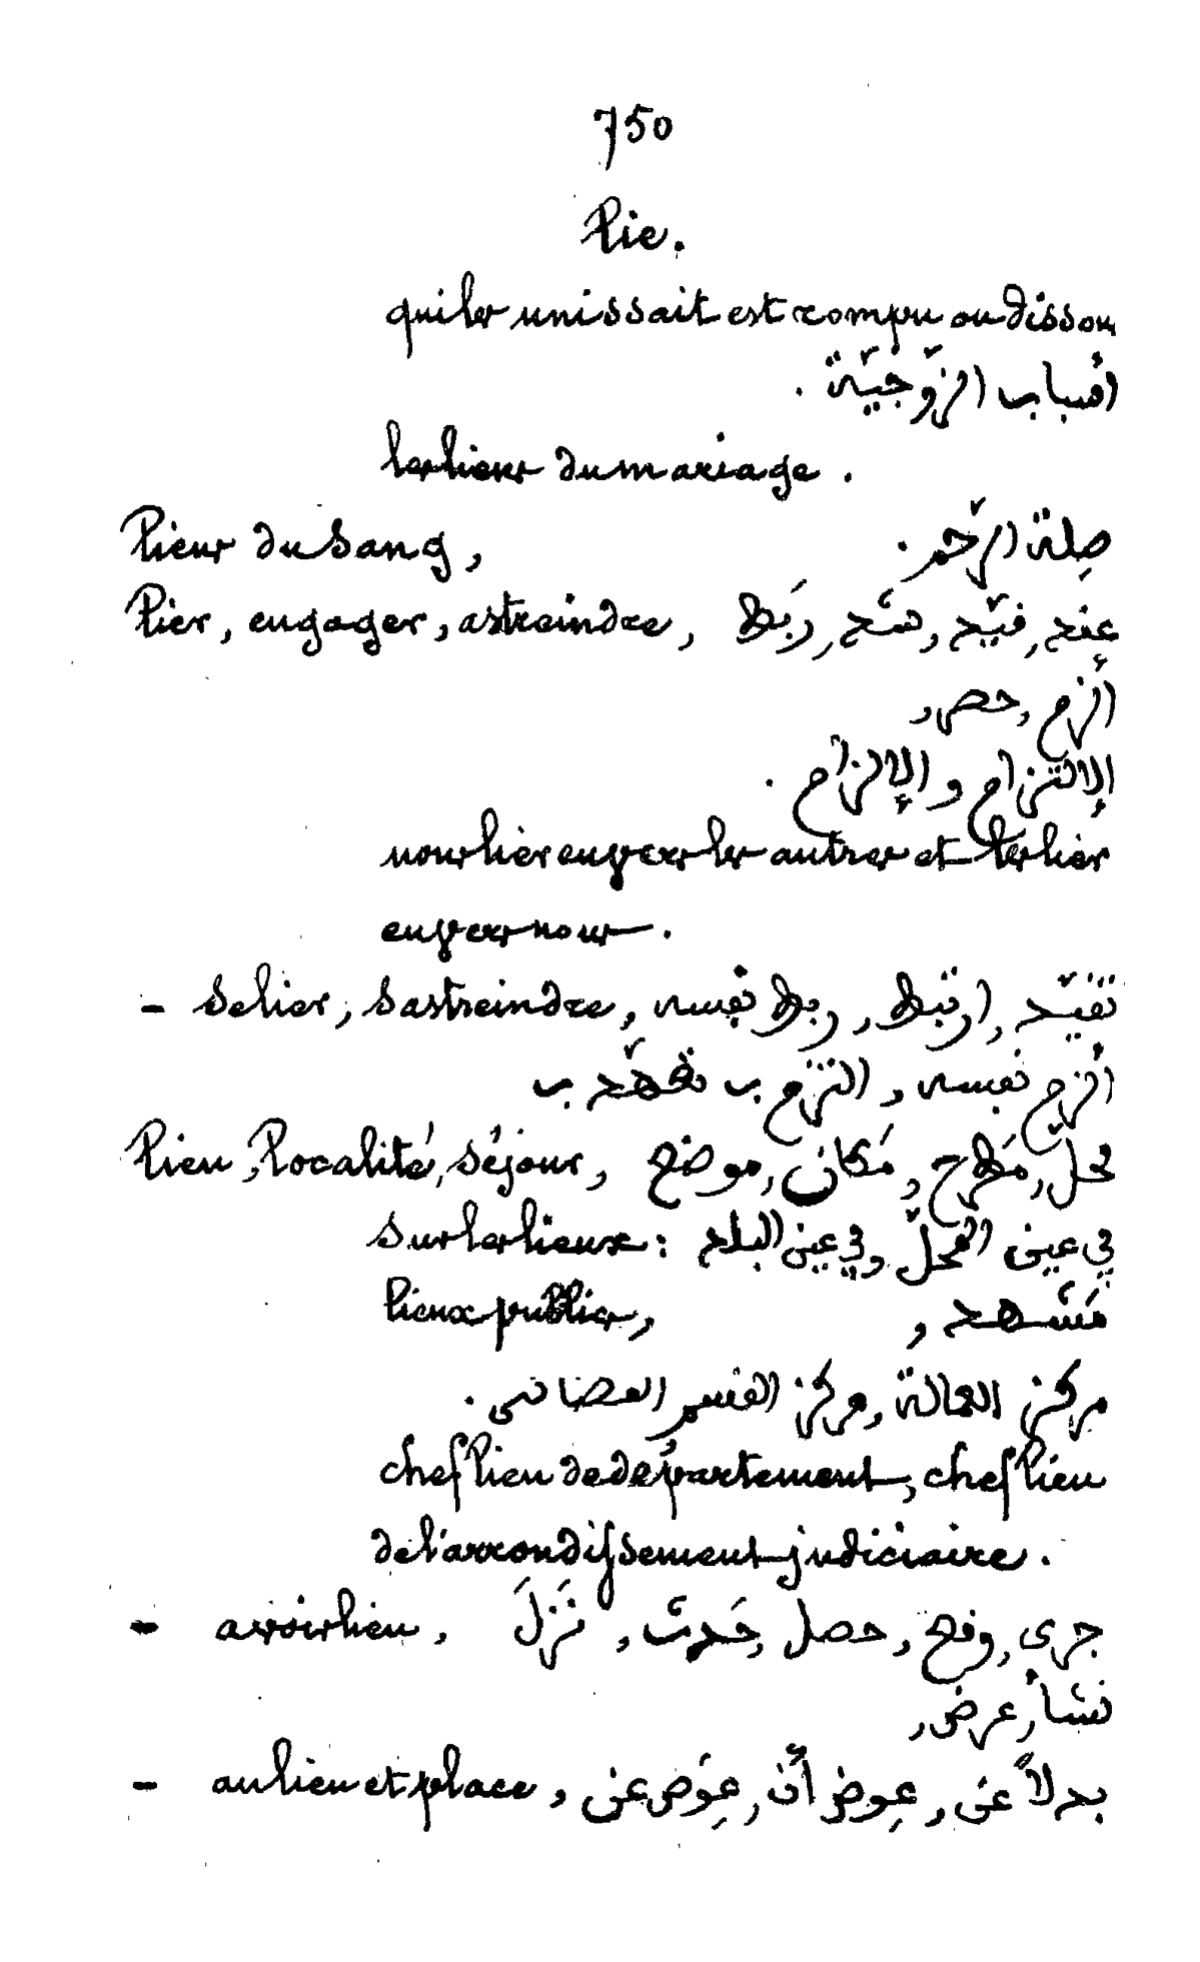 750
Lie.
qui les unissait est rompu ou dissou
أسباب الزّوجيّة .
les liens du mariage .
Liens du sang , صِلة الرّحم .
Lier , engager , astreindre , عقد , قيّد , شدّ , رَبَط
ألزم , حصر ,
الالتزام و الإلزام .
nous lier envers les autres et les lier
envers nous .
- se lier , s'astreindre , تقيّد , ارتبط , ربط نفسه
ألزم نفسه , التزم ب تعهّد ب
Lieu , Localité , séjour , محلّ , مَطرح , مَكان , موضع
sur les lieux : في عين المحلّ , في عين البلد
lieux publics , مَشهد ,
مركز العمالة , مركز القسم القضائي .
chef lieu de département , chef lieu
de l'arrondissement judiciaire .
- avoir lieu , جرى , وقع , حصل , حَدث , نَزلَ
نشأ , عرض ,
- au lieu et place , بدلاً عن , عِوض أن , عِوَض عن